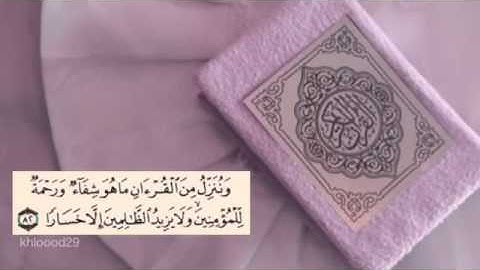 القرآن الكريم
وَنُنَزِّلُ مِنَ ٱلْقُرْءَانِ مَا هُوَ شِفَآءٌ وَرَحْمَةٌ
لِّلْمُؤْمِنِينَ ۙ وَلَا يَزِيدُ ٱلظَّـٰلِمِينَ إِلَّا خَسَارًا ٨٢
khloood29